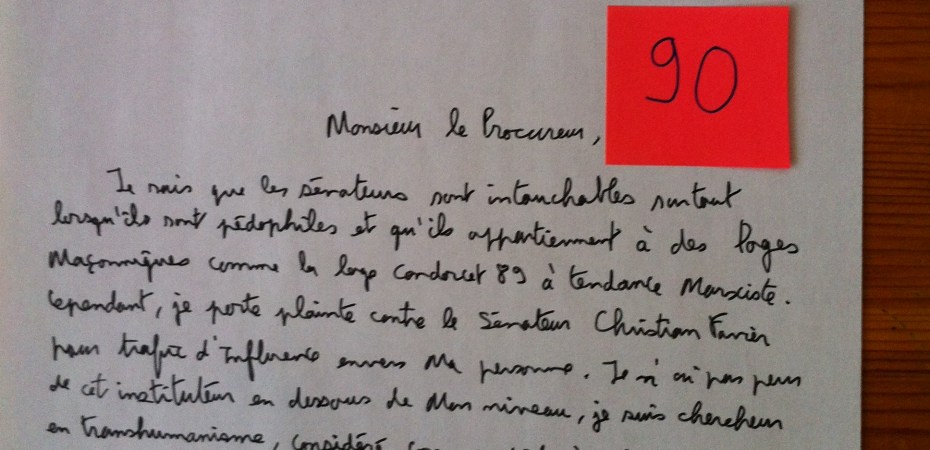 90
Monsieur le Procureur,
Je sais que les sénateurs sont intouchables surtout
lorsqu'ils sont pédophiles et qu'ils appartiennent à des loges
Maçonniques comme la loge Condorcet 89 à tendance Marxiste.
Cependant, je porte plainte contre le Sénateur Christian Favier
pour trafic d'Influence envers Ma personne. Je n'ai pas peur
de cet instituteur en dessous de Mon niveau, je suis chercheur
en transhumanisme, considéré